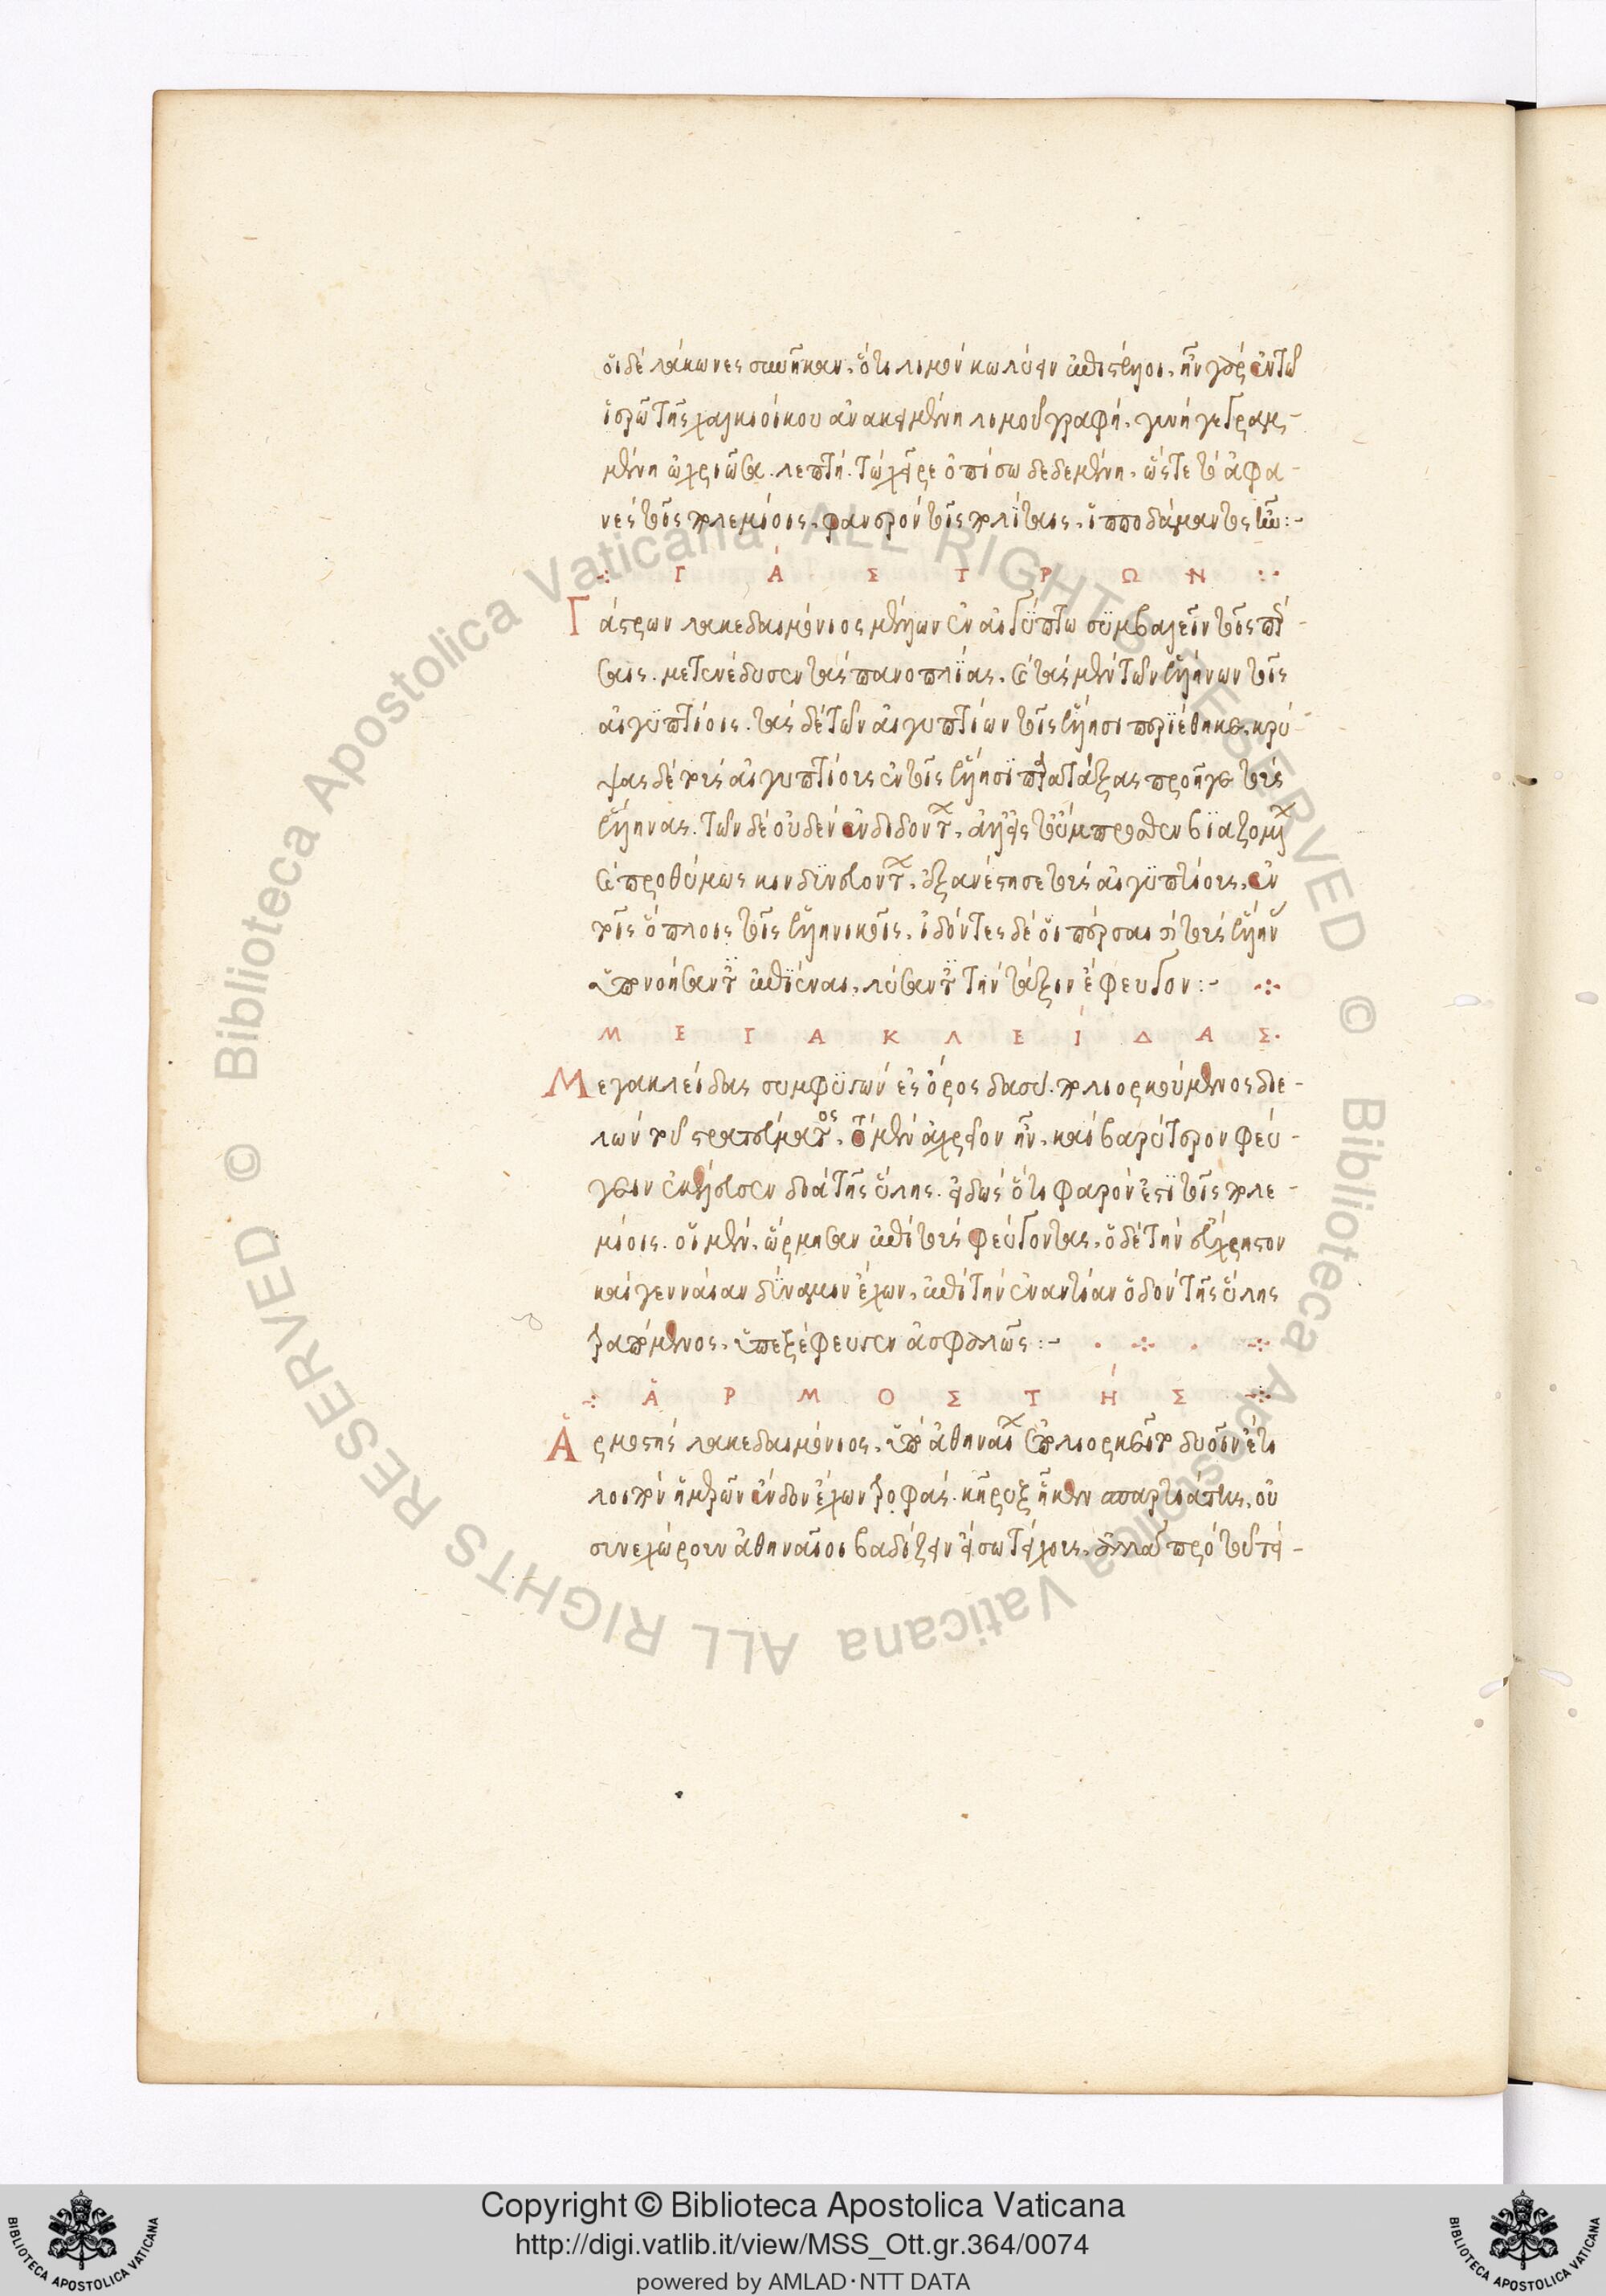 οἱ δὲ λάκωνες συνῆκαν, ὅτι λιμὸν κωλύειν ἐπιστέλλοι. ἦν γὰρ ἐν τῶ
ἱερῶ τῆς χαλκιοίκου ἀνακειμένη λιμοῦ γραφή. γυνὴ γεγραμ-
μένη ὠχριῶσα. λεπτή. τὼ χεῖρε ὀπίσω δεδεμένη. ὥστε τὸ ἀφα-
νὲς τοῖς πολεμίοις, φανερὸν τοῖς πολίταις, ἱπποδάμαντος ἦν:-
Γ Ά Σ Τ Ρ Ω Ν
Γάστρων λακεδαιμόνιος μέλλων ἐν αἰγύπτω συμβαλεῖν τοῖς πέρ-
σαις. μετενέδυσεν τὰς πανοπλίας. καὶ τὰς μὲν τῶν ἑλλήνων τοῖς
αἰγυπτίοις. τὰς δὲ τῶν αἰγυπτίων τοῖς ἕλλησι περιέθηκε. κρύ-
ψας δὲ τοὺς αἰγυπτίους ἐν τοῖς ἕλλησι παρατάξας προῆγε τοὺς
ἕλληνας. τῶν δὲ οὐδὲν ἐνδιδόντων, ἀλλ' εἰς τοὔμπροσθεν βιαζομένων
καὶ προθύμως κινδυνευόντων, ἐξανέστησε τοὺς αἰγυπτίους, ἐν
τοῖς ὅπλοις τοῖς ἑλληνικοῖς, ἰδόντες δὲ οἱ πέρσαι καὶ τοὺς ἕλληνας
ὑπονοήσαντες ἐπιέναι, λύσαντες τὴν τάξιν ἔφευγον:-
Μ Ε Γ Α Κ Λ Ε Ί Δ Α Σ
Μεγακλείδας συμφυγὼν ἐς ὄρος δασύ. πολιορκούμενος διε-
λὼν τοῦ στρατεύματος, ὃ μὲν ἀχρεῖον ἦν, καὶ βαρύτερον φεύ-
γειν ἐκέλευσεν διὰ τῆς ὕλης. εἰδὼς ὅτι φανερὸν ἔσται τοῖς πολε-
μίοις. οἱ μὲν, ὥρμησαν ἐπὶ τοὺς φεύγοντας, ὁ δὲ τὴν εὔχρηστον
καὶ γενναίαν δύναμιν ἔχων, ἐπὶ τὴν ἐναντίαν ὁδὸν τῆς ὕλης
τραπόμενος, ὑπεξέφευγεν ἀσφαλῶς:-
Ἁ Ρ Μ Ο Σ Τ Ή Σ
Ἁρμοστὴς λακεδαιμόνιος, ὑπὸ ἀθηναίων ἐπολιορκεῖτο δυοῖν ἔτι
λοιπὸν ἡμερῶν ἔνδον ἔχων τροφάς. κῆρυξ ἧκεν σπαρτιάτης, οὐ
συνεχώρουν ἀθηναῖοι βαδίζειν εἴσω τείχους, ἀλλὰ πρὸ τοῦ τεί-
Copyright © Biblioteca Apostolica Vaticana
http://digi.vatlib.it/view/MSS_Ott.gr.364/0074
powered by AMLAD·NTT DATA